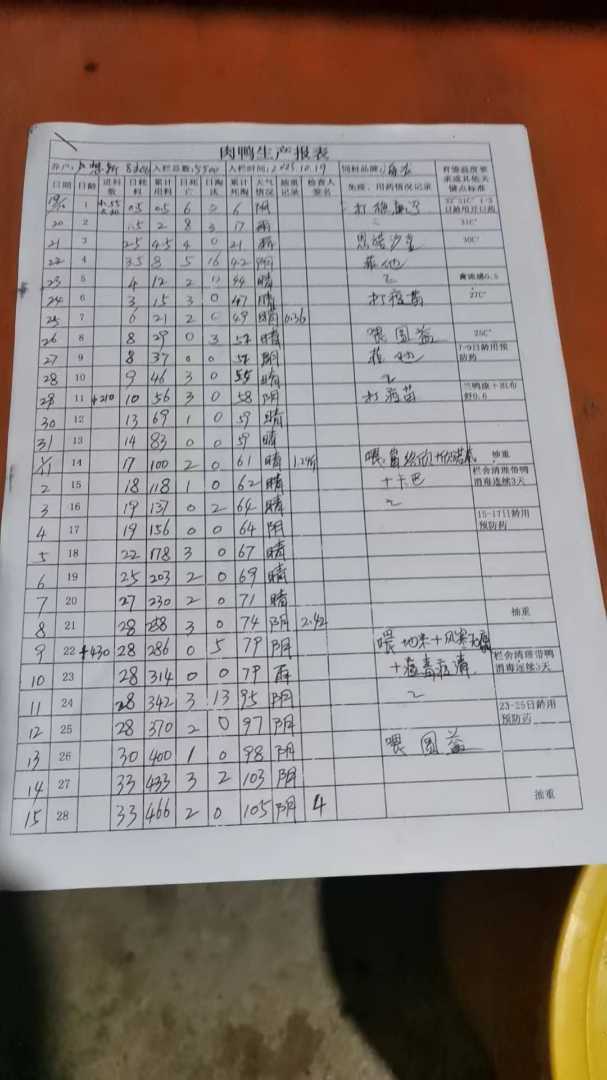 肉鸭生产报表
养户: 入栏总数: 5500 入栏时间: 2025.12.19 饲料品牌: 育雏温度要求或其他关键点标准
日期 日龄 进料数 日耗料 累计用料 日死亡 日淘汰 累计死淘 天气情况 抽重记录 检查人签名 免疫、用药情况记录
1 0.5 0.5 6 0 6 阴 打
20 2 1.5 2 8 3 17 雨 31℃
21 3 2.5 4.5 4 0 21 阴 30℃
22 4 3.5 8 5 16 42 阴
23 5 4 12 2 0 44 晴 禽流感0.5
24 6 3 15 3 0 47 晴 打疫苗 27℃
25 7 6 21 2 0 49 晴 0.36
26 8 8 29 0 3 52 晴 喂 图益 25℃
27 9 8 37 0 0 52 阴 7-9日龄用预防药
28 10 9 46 3 0 55 晴
29 11 +210 10 56 3 0 58 阴 打疫苗
30 12 13 69 1 0 59 晴
31 13 14 83 0 0 59 晴
1/1 14 17 100 2 0 61 晴 喂 抽重
2 15 18 118 1 0 62 晴 +卡巴 栏舍清理带鸭消毒连续3天
3 16 19 137 0 2 64 晴
4 17 19 156 0 0 64 阴 15-17日龄用预防药
5 18 22 178 3 0 67 晴
6 19 25 203 2 0 69 晴
7 20 27 230 2 0 71 晴
8 21 28 258 3 0 74 阴 2.42 抽重
9 22 +430 28 286 0 5 79 阴 喂 栏舍清理带鸭消毒连续3天
10 23 28 314 0 0 79 雨
11 24 28 342 3 13 95 阴
12 25 28 370 2 0 97 阴 23-25日龄用预防药
13 26 30 400 1 0 98 阴 喂 图益
14 27 33 433 3 2 103 阴
15 28 33 466 2 0 105 阴 4 抽重